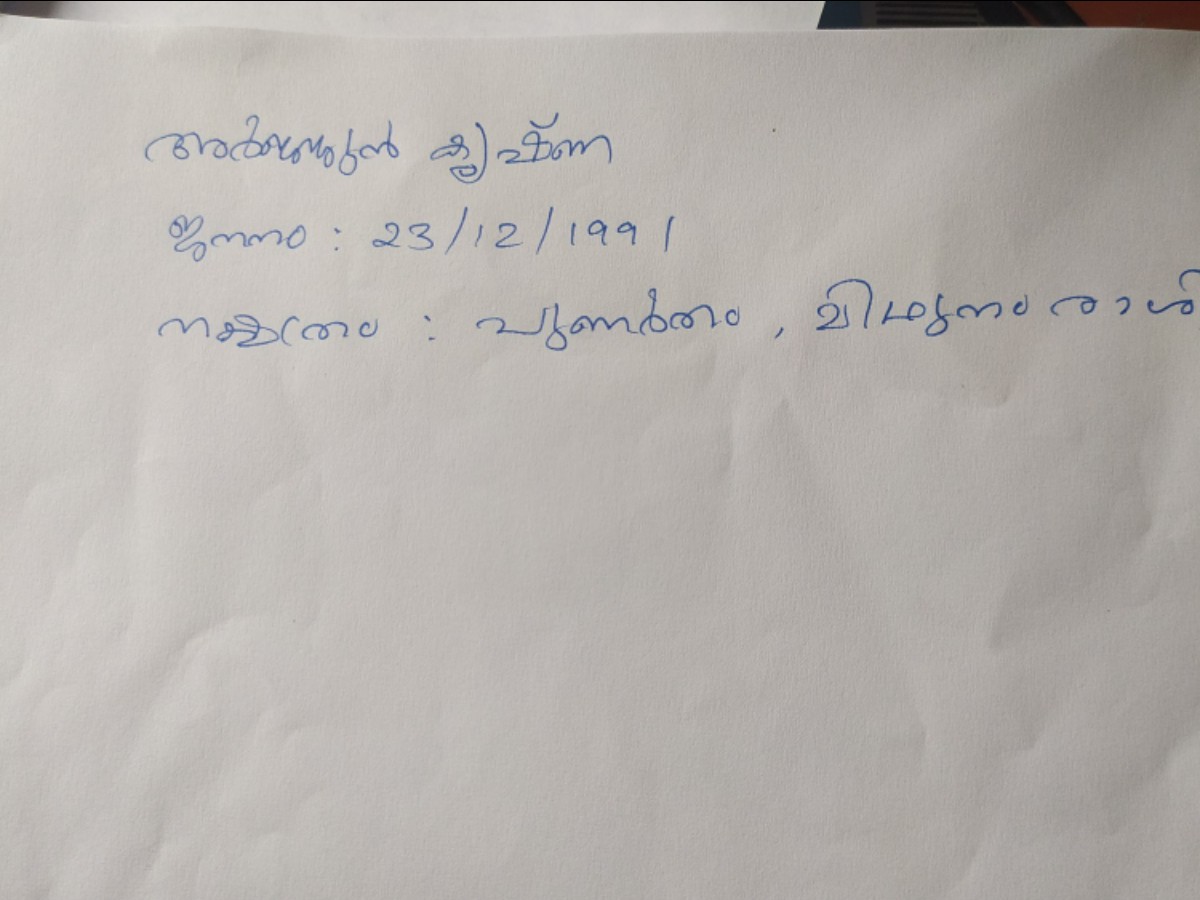 അർജ്ജുൻ കൃഷ്ണ
ജനനം : 23/12/1991
നക്ഷത്രം : പുണർതം , മിഥുനം രാശി